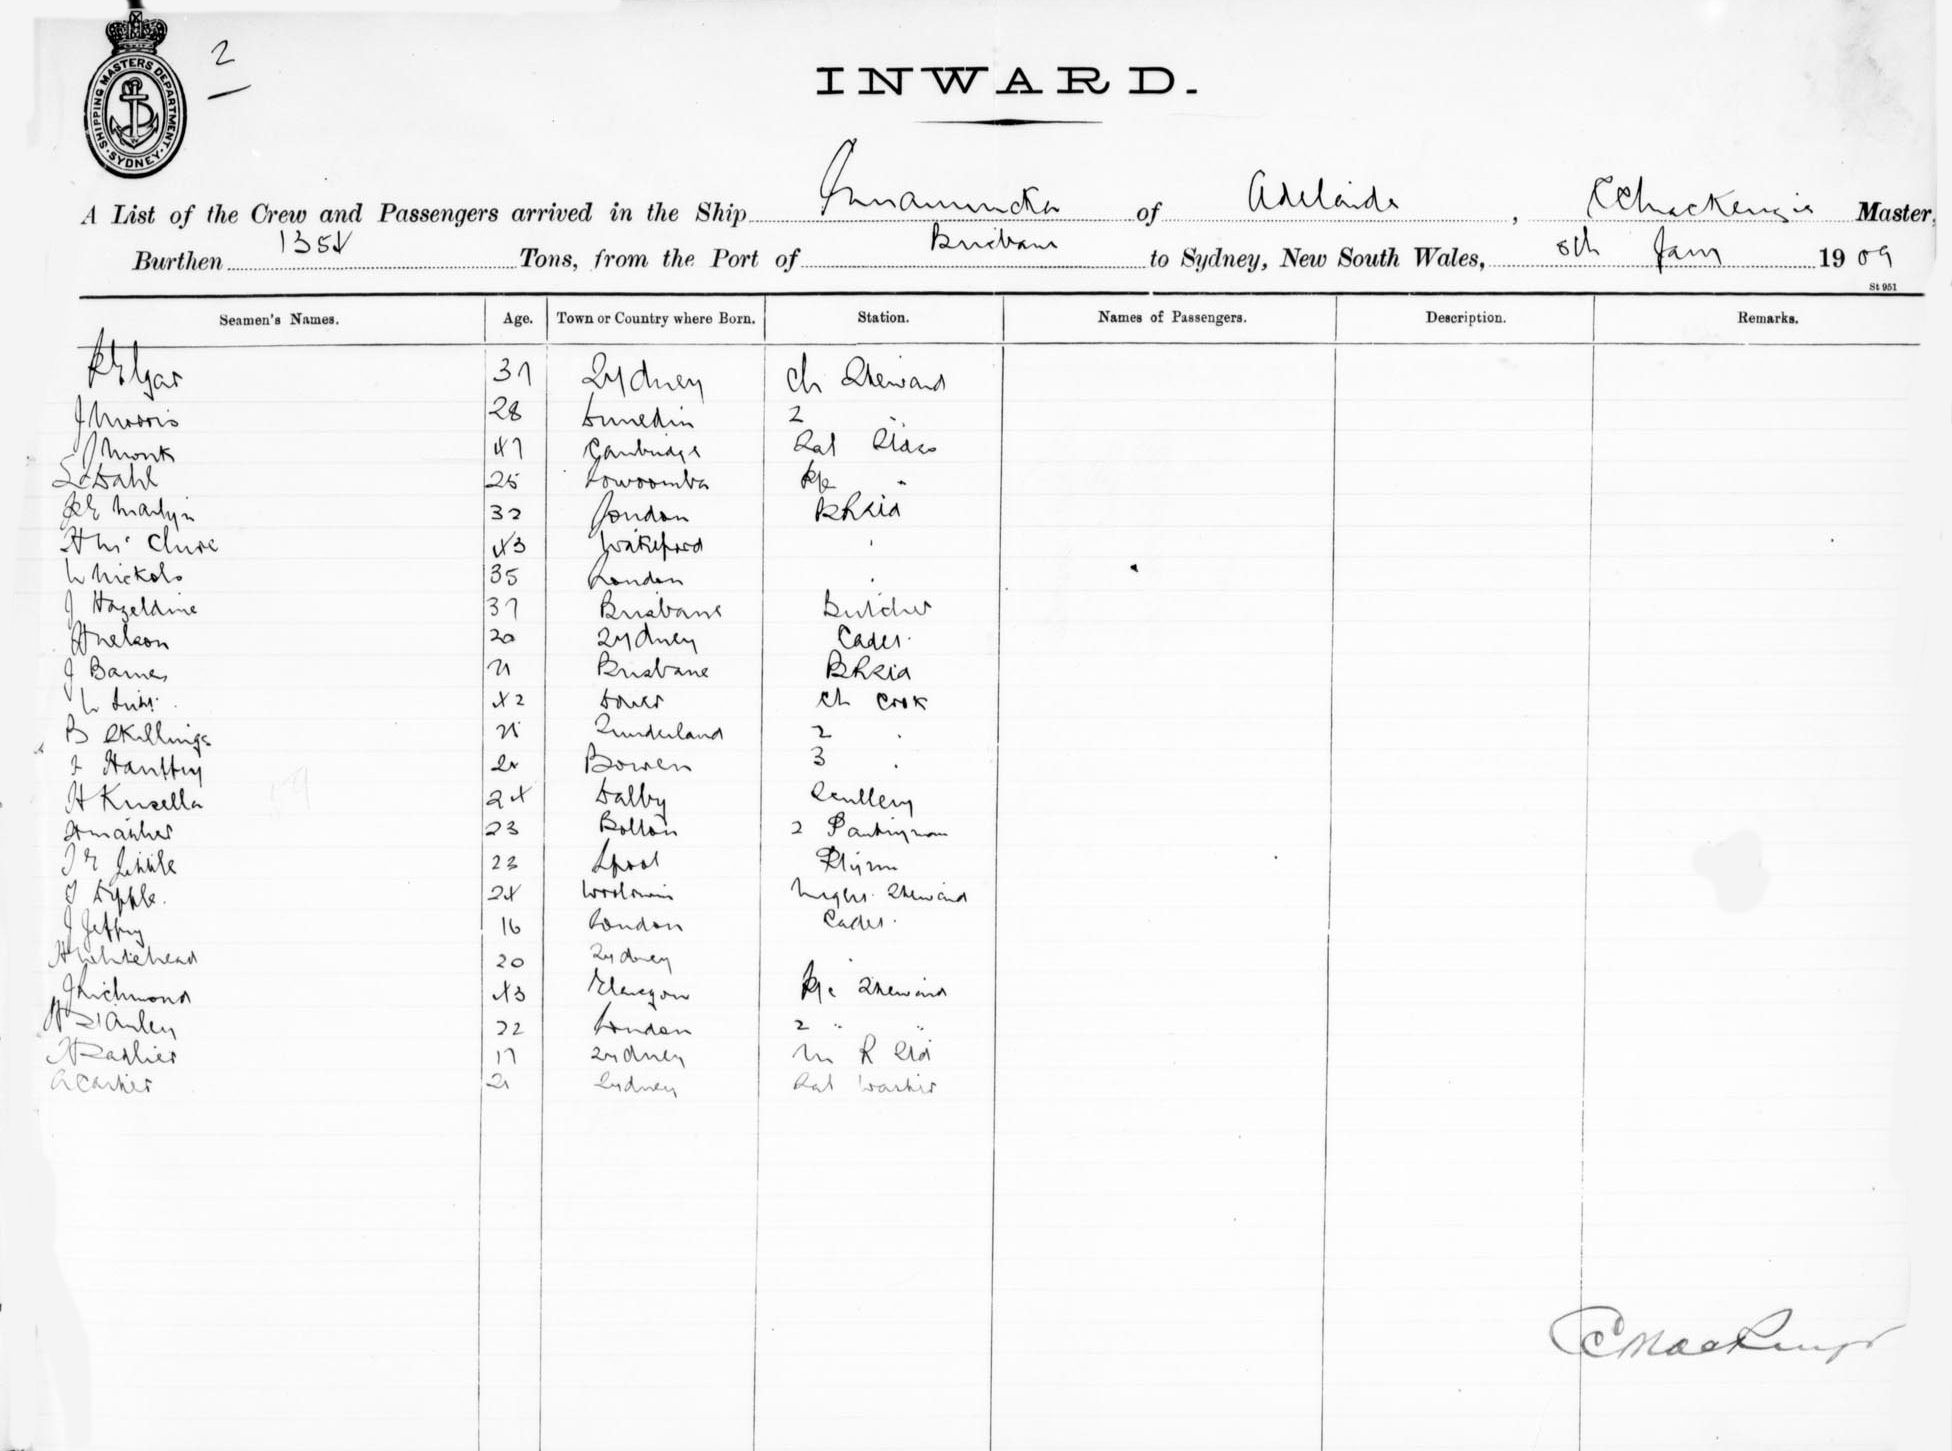 2
SHIPPING MASTERS DEPARTMENT
SYDNEY
INWARD.
A List of the Crew and Passengers arrived in the Ship Innamincka of Adelaide, Mackenzie Master,
Burthen 1354 Tons, from the Port of Brisbane to Sydney, New South Wales, 8th Jany 1909
St 951
Seamen's Names. Age. Town or Country where Born. Station. Names of Passengers. Description. Remarks.
37 Sydney Ch Steward
J Morris 28 Dunedin 2 "
J Monk 47 Cambridge Sal Stdss
Dahl 25 Towoomba "
Martyn 32 London B R Std
H McClure 43 Wakeford "
W Nickols 35 London "
J Hazeldine 37 Brisbane Butcher
H Nelson 20 Sydney Cadet
J Barnes 21 Brisbane B R Std
W 42 Dover Ch Cook
B Skillings Sunderland 2 "
Bowen 3 "
H Kusella 24 Dalby Scullery
23 Bolton 2 Pantryman
J E Little 23 Lpool
T Dipple. 24 Steward
J Jeffry 16 London Cadet
H Whitehead 20 Sydney "
J Richmond 43 Glasgow Steward
H Stanley 22 London 2 " "
H Sadlier 17 Sydney M R Std
A Carter 21 Sydney Sal Washer
C Mackenzie